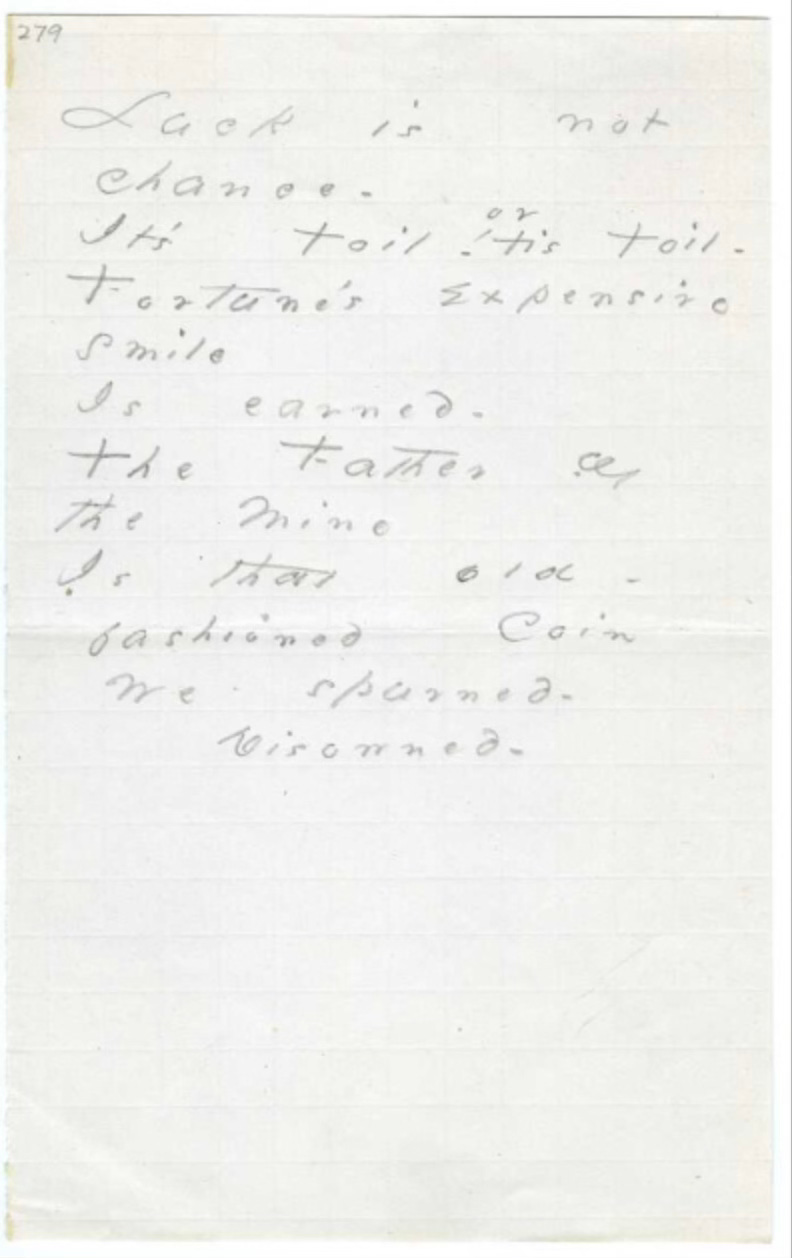 279
Luck is not
chance -
It's toil - or 'tis toil -
Fortune's Expensive
smile
Is earned -
the Father of
the Mine
Is that old -
fashioned Coin
We spurned -
Disowned -